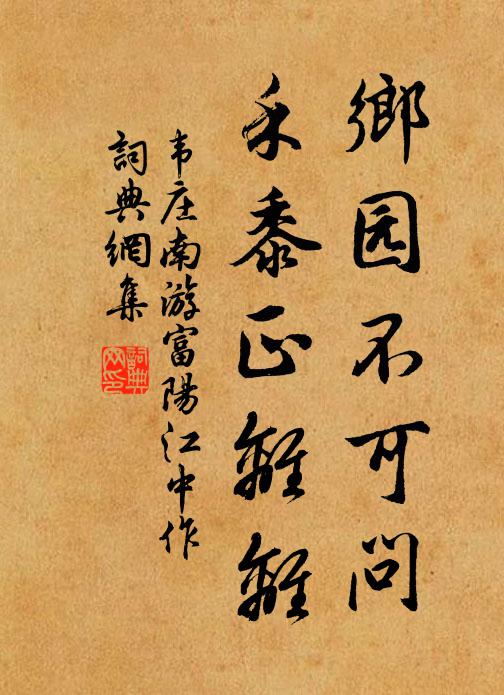 鄉园不可问
禾黍正離離
韦庄南游富陽江中作
詞典網集
詞典
网印